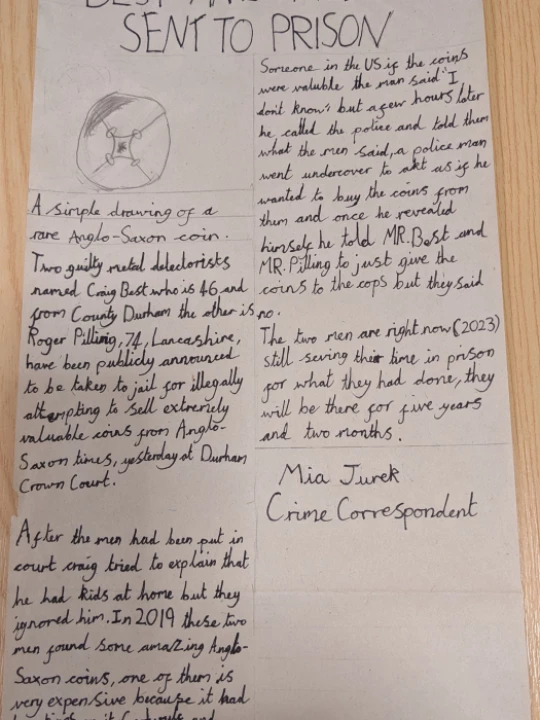 SENT TO PRISON
A simple drawing of a
rare Anglo-Saxon coin.
Two guilty metal detectorists
named Craig Best who is 46 and
from County Durham the other is
Roger Pilling, 74, Lancashire,
have been publicly announced
to be taken to jail for illegally
attempting to sell extremely
valuable coins from Anglo-
Saxon times, yesterday at Durham
Crown Court.
After the men had been put in
court craig tried to explain that
he had kids at home but they
ignored him. In 2019 these two
men found some amazing Anglo-
Saxon coins, one of them is
very expensive because it had
Someone in the US if the coins
were valuble the man said "I
don't know" but a few hours later
he called the police and told them
what the men said, a police man
went undercover to akt as if he
wanted to buy the coins from
them and once he revealed
himself he told MR.Best and
MR.Pilling to just give the
coins to the cops but they said
no.
The two men are right now (2023)
still seving their time in prison
for what they had done, they
will be there for five years
and two months.
Mia Jurek
Crime Correspondent